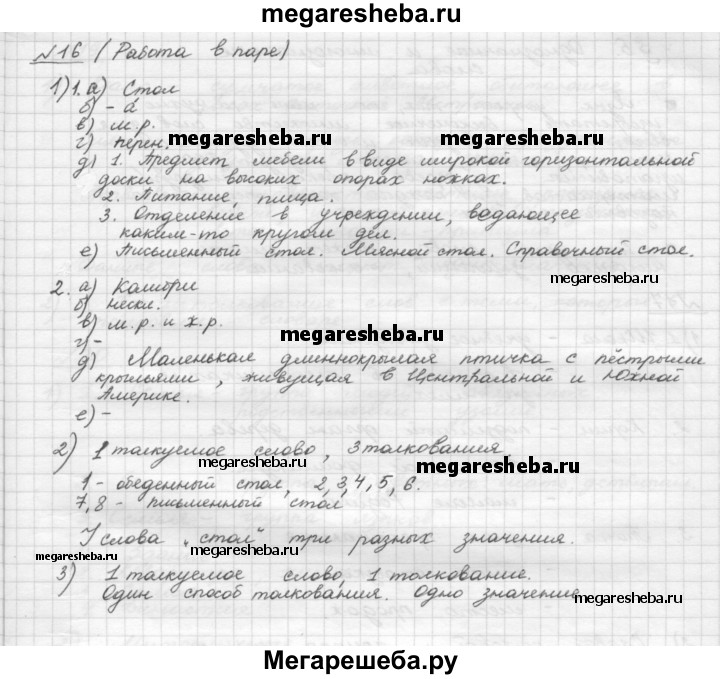 megaresheba.ru
№16 (Работа в паре)
1) 1. а) Стол
б) - а́
в) м.р.
г) перен. megaresheba.ru megaresheba.ru
д) 1. Предмет мебели в виде широкой горизонтальной
доски на высоких опорах ножках.
2. Питание, пища.
3. Отделение в учреждении, ведающее
каким-то кругом дел.
е) Письменный стол. Мясной стол. Справочный стол.
megaresheba.ru
2. а) Колибри
б) нескл.
в) м.р. и ж.р.
г) - megaresheba.ru
д) Маленькая длиннокрылая птичка с пёстрыми
крыльями, живущая в Центральной и Южной
Америке.
е) -
2) 1 толкуемое слово, 3 толкования.
megaresheba.ru megaresheba.ru
1 - обеденный стол, 2, 3, 4, 5, 6.
7, 8 - письменный стол
У слова "стол" три разных значения.
megaresheba.ru megaresheba.ru
3) 1 толкуемое слово, 1 толкование.
Один способ толкования. Одно значение
megaresheba.ru
Мегарешеба.ру